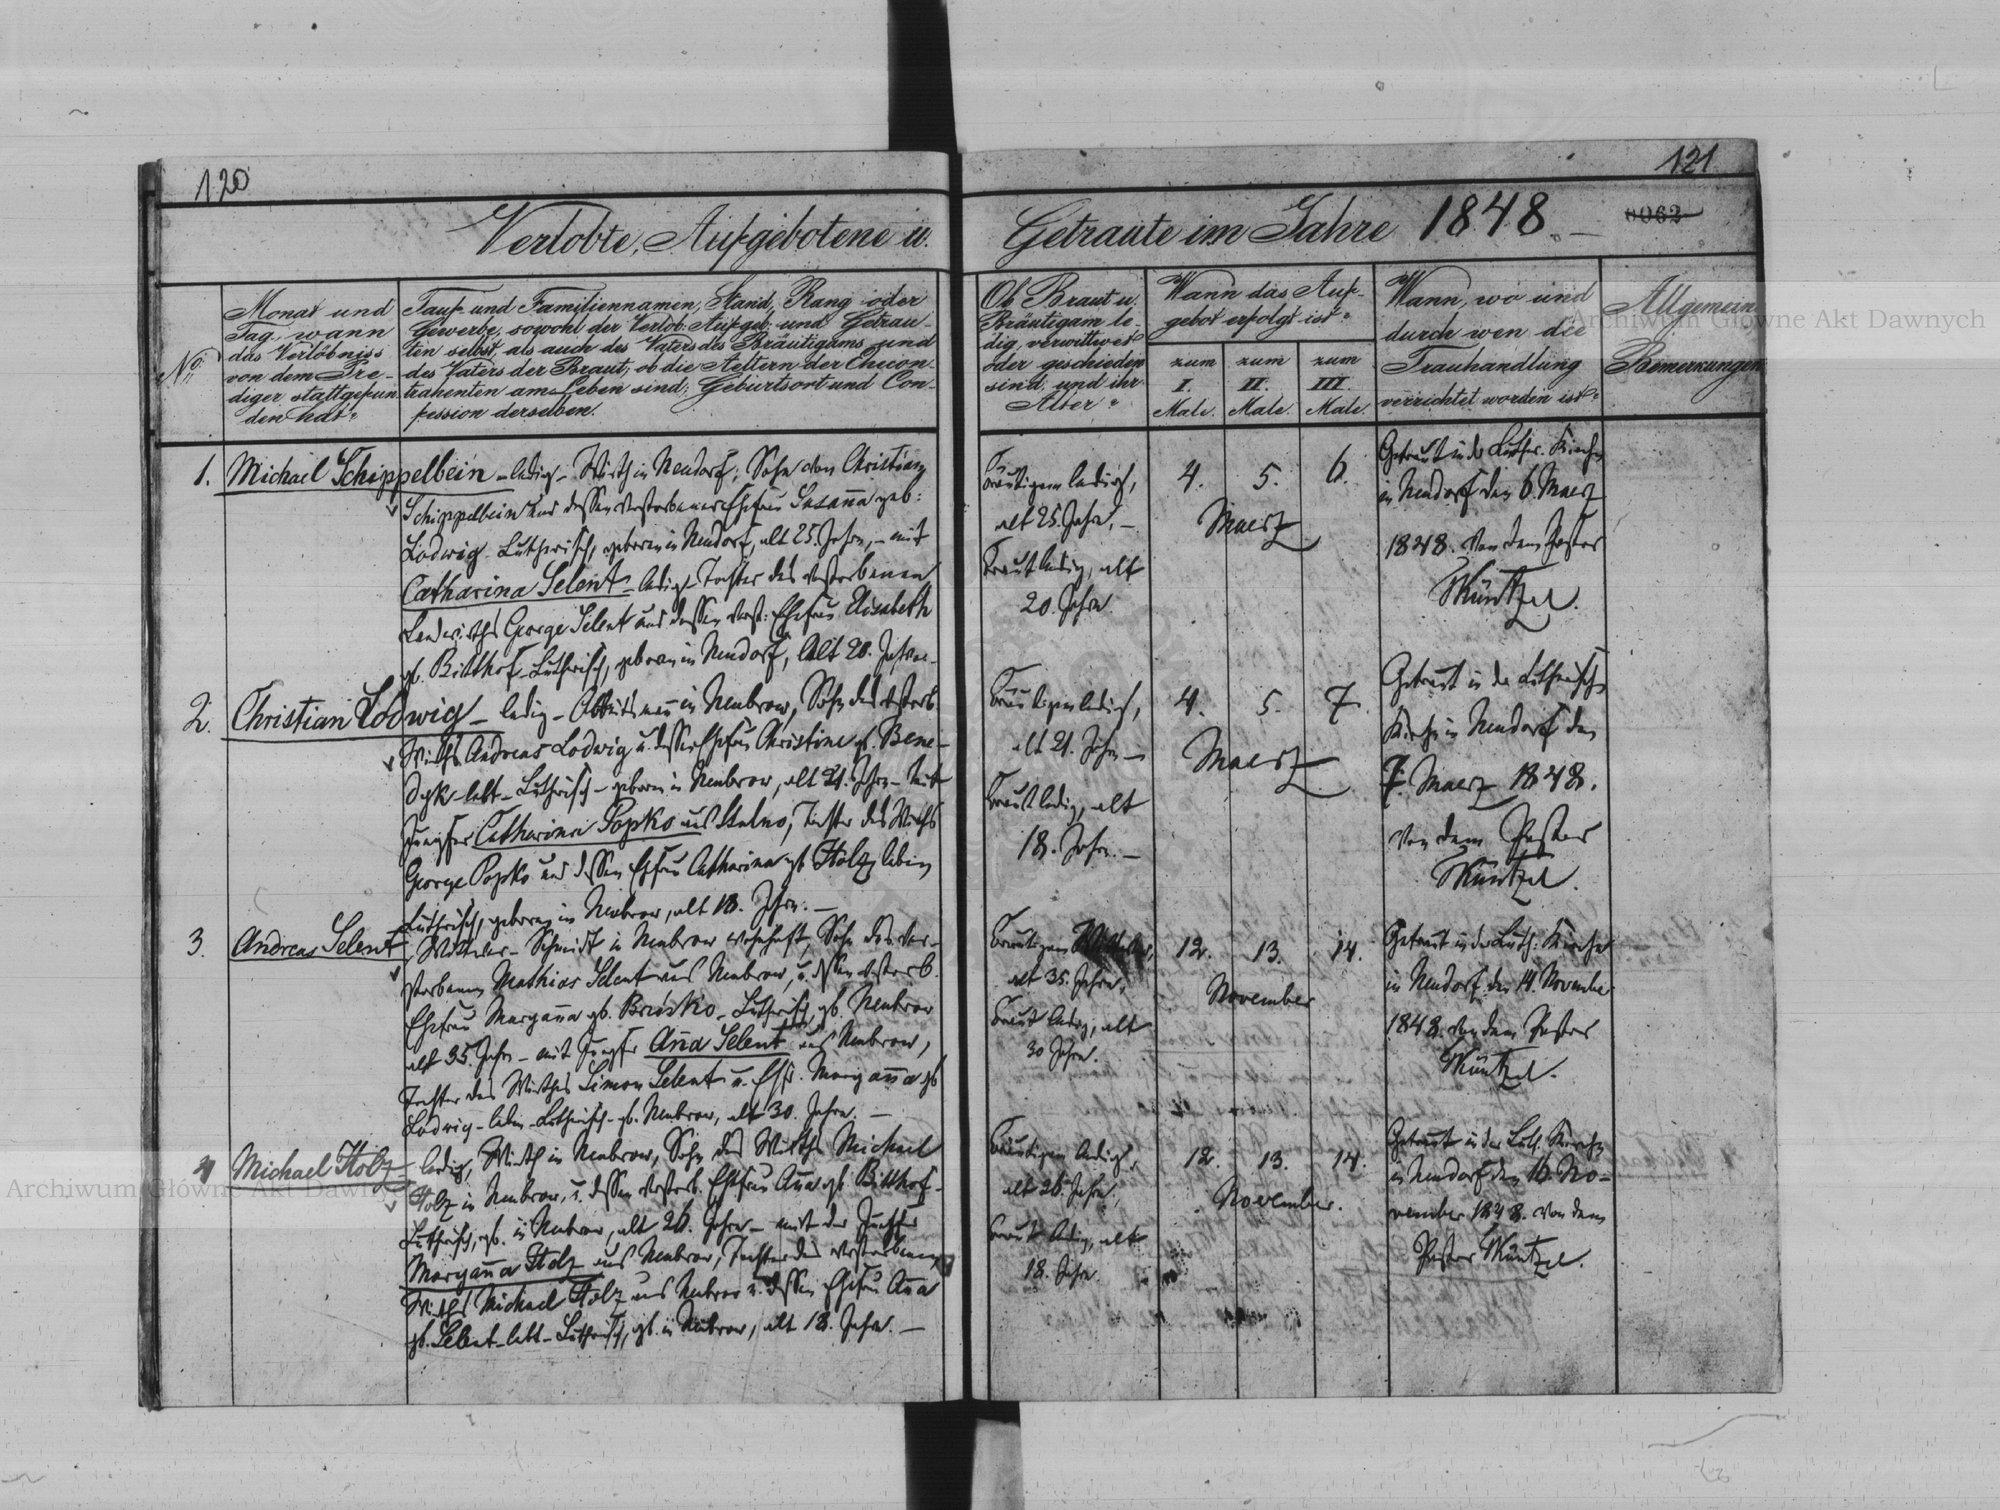 120
121
0062
Verlobte, Aufgebotene u. Getraute im Jahre 1848.
No.
Monat und
Tag, wann
das Verlöbniss
von dem Pre-
diger stattgefun-
den hat?
Tauf- und Familiennamen, Stand, Rang oder
Gewerbe, sowohl der Verlob. Aufgeb. und Getrau-
ten selbst, als auch des Vaters des Bräutigams und
des Vaters der Braut; ob die Aeltern der Checon-
trahenten am Leben sind; Geburtsort und Con-
fession derselben.
Ob Braut u.
Bräutigam le-
dig, verwittwet
oder geschieden
sind, und ihr
Alter?
Wann das Auf-
gebot erfolgt ist?
zum
I.
Male.
zum
II.
Male.
zum
III.
Male.
Wann, wo und
durch wen die
Trauhandlung
verrichtet worden ist?
Allgemein
Bemerkungen
Archiwum Główne Akt Dawnych
1. Michael Schippelbein - ledig - Wirth in Neudorf; Sohn von Christian
Schippelbein und dessen verstorbenen Ehefrau Susanna geb:
Lodwig. Lutherisch, geboren in Neudorf, alt 25. Jahre, - mit
Catharina Selent - ledig - Tochter des verstorbenen
Landwirths George Selent und dessen verst: Ehefrau Elisabeth
gb. Bitthof - Lutherisch, geboren in Neudorf, Alt 20. Jahre.
Bräutigam ledig,
alt 25. Jahre, -
Braut ledig, alt
20. Jahre.
4. 5. 6.
Maerz
Getraut in der Luther. Kirche
in Neudorf den 6. Maerz
1848. Von dem Pastor
Müntzel.
2. Christian Lodwig - ledig - Arbeitsmann in Neubrow, Sohn des verstorb.
Wirths Andreas Lodwig u. dessen Ehefrau Christine gb. Bene-
dyk - lebt - Lutherisch - geboren in Neubrow, alt 21. Jahre - mit
Jungfer Catharina Popko aus, Tochter des Wirths
George Popko und dessen Ehefrau Catharina gb Holz, leben
Lutherisch, geboren in Neubrow, alt 18. Jahre. -
Bräutigam ledig,
alt 21. Jahre -
Braut ledig, alt
18. Jahre. -
4. 5. 7.
Maerz
Getraut in der Lutherisch
Kirche in Neudorf den
7. Maerz 1848.
Von dem Pastor
Müntzel.
3. Andreas Selent, Wittwer - Schmidt in Neubrow wohnhaft, Sohn des ver-
storbenen Mathias Selent aus Neubrow, u. dessen verstorb.
Ehefrau Maryanna gb. - Lutherisch, gb. Neubrow
alt 35. Jahre - mit Jungfer Anna Selent aus Neubrow,
Tochter des Wirthes Simon Selent u. Ehfr. Maryanna gb
Lodwig - leben - Lutherisch - gb. Neubrow, alt 30. Jahre. -
Bräutigam Wittwer,
alt 35. Jahre,
Braut ledig, alt
30 Jahre.
12. 13. 14.
November
Getraut in der Luth: Kirche
in Neudorf den 14. November
1848. Von dem Pastor
Müntzel.
4 Michael Holz - ledig, Wirth in Neubrow, Sohn des Wirths Michael
Holz in Neubrow, u. dessen verstorb. Ehefrau Anna gb Bitthof -
Lutherisch, gb. in Neubrow, alt 26. Jahre - mit der Jungfer
Maryanna Holz aus Neubrow, Tochter des verstorbenen
Wirths Michael Holz aus Neubrow u. dessen Ehefrau Anna
gb. Selent - lebt - Lutherisch, gb. in Neubrow, alt 18. Jahre. -
Bräutigam ledig,
alt 26. Jahre,
Braut ledig, alt
18. Jahre.
12. 13. 14.
November.
Getraut in der Luth. Kirche
in Neudorf den 16. No-
vember 1848. Von dem
Pastor Müntzel.
Archiwum Główne Akt Dawnych